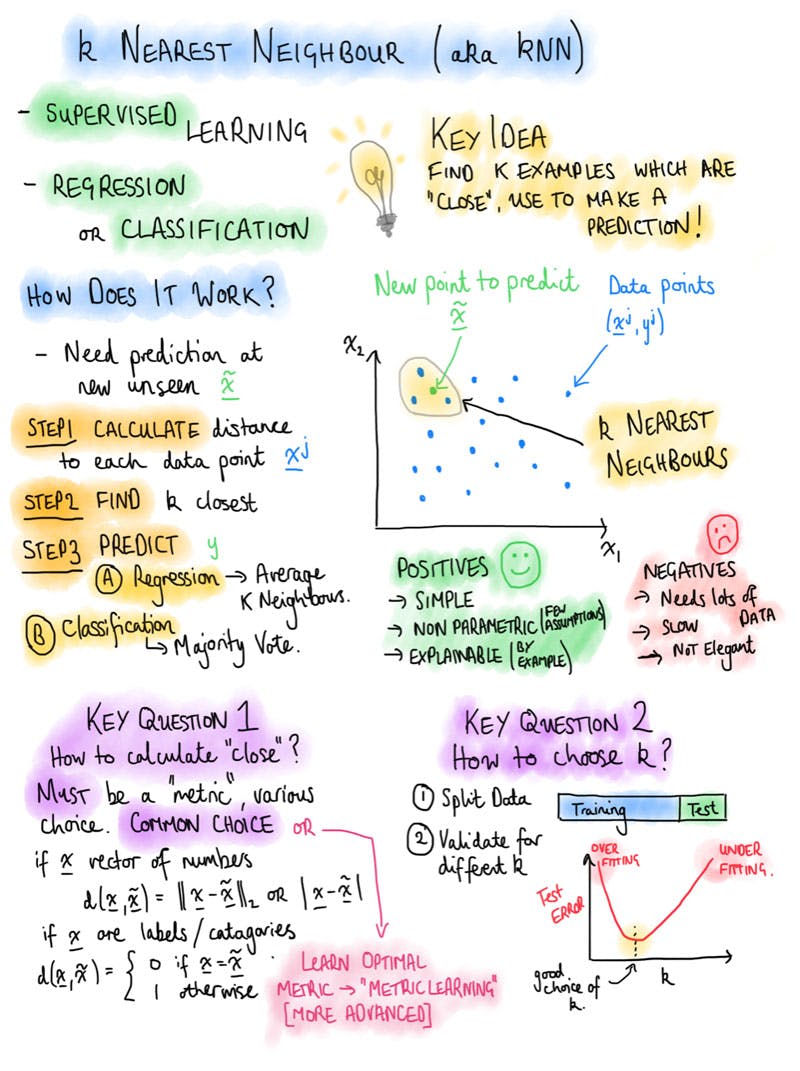 k NEAREST NEIGHBOUR (aka kNN)
- SUPERVISED LEARNING
- REGRESSION
OR CLASSIFICATION
KEY IDEA
FIND K EXAMPLES WHICH ARE
"CLOSE", USE TO MAKE A
PREDICTION!
HOW DOES IT WORK?
- Need prediction at
new unseen x̃
STEP1 CALCULATE distance
to each data point x^j
STEP2 FIND k closest
STEP3 PREDICT y
(A) Regression → Average
K Neighbours.
(B) Classification
↳ Majority Vote.
New point to predict
x̃
Data points
(x^j, y^j)
x₂
k NEAREST
NEIGHBOURS
x₁
POSITIVES
→ SIMPLE
→ NON PARAMETRIC (FEW
ASSUMPTIONS)
→ EXPLAINABLE (BY
EXAMPLE)
NEGATIVES
→ Needs lots of
DATA
→ SLOW
→ NOT Elegant
KEY QUESTION 1
How to calculate "close"?
MUST be a "metric", various
choice. COMMON CHOICE OR
if x vector of numbers
d(x, x̃) = ||x-x̃||₂ OR |x-x̃|
if x are labels/catagaries
d(x, x̃) = { 0 if x=x̃
1 otherwise
LEARN OPTIMAL
METRIC → "METRIC LEARNING"
[MORE ADVANCED]
KEY QUESTION 2
How to choose k?
(1) Split Data
Training Test
(2) Validate for
different k
OVER
FITTING
UNDER
FITTING.
Test
ERROR
good
choice of
k.
k